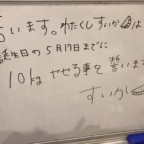 言います。わたくしすいかは
誕生日の5月17日までに
10kgやせる事を誓いま
すいか